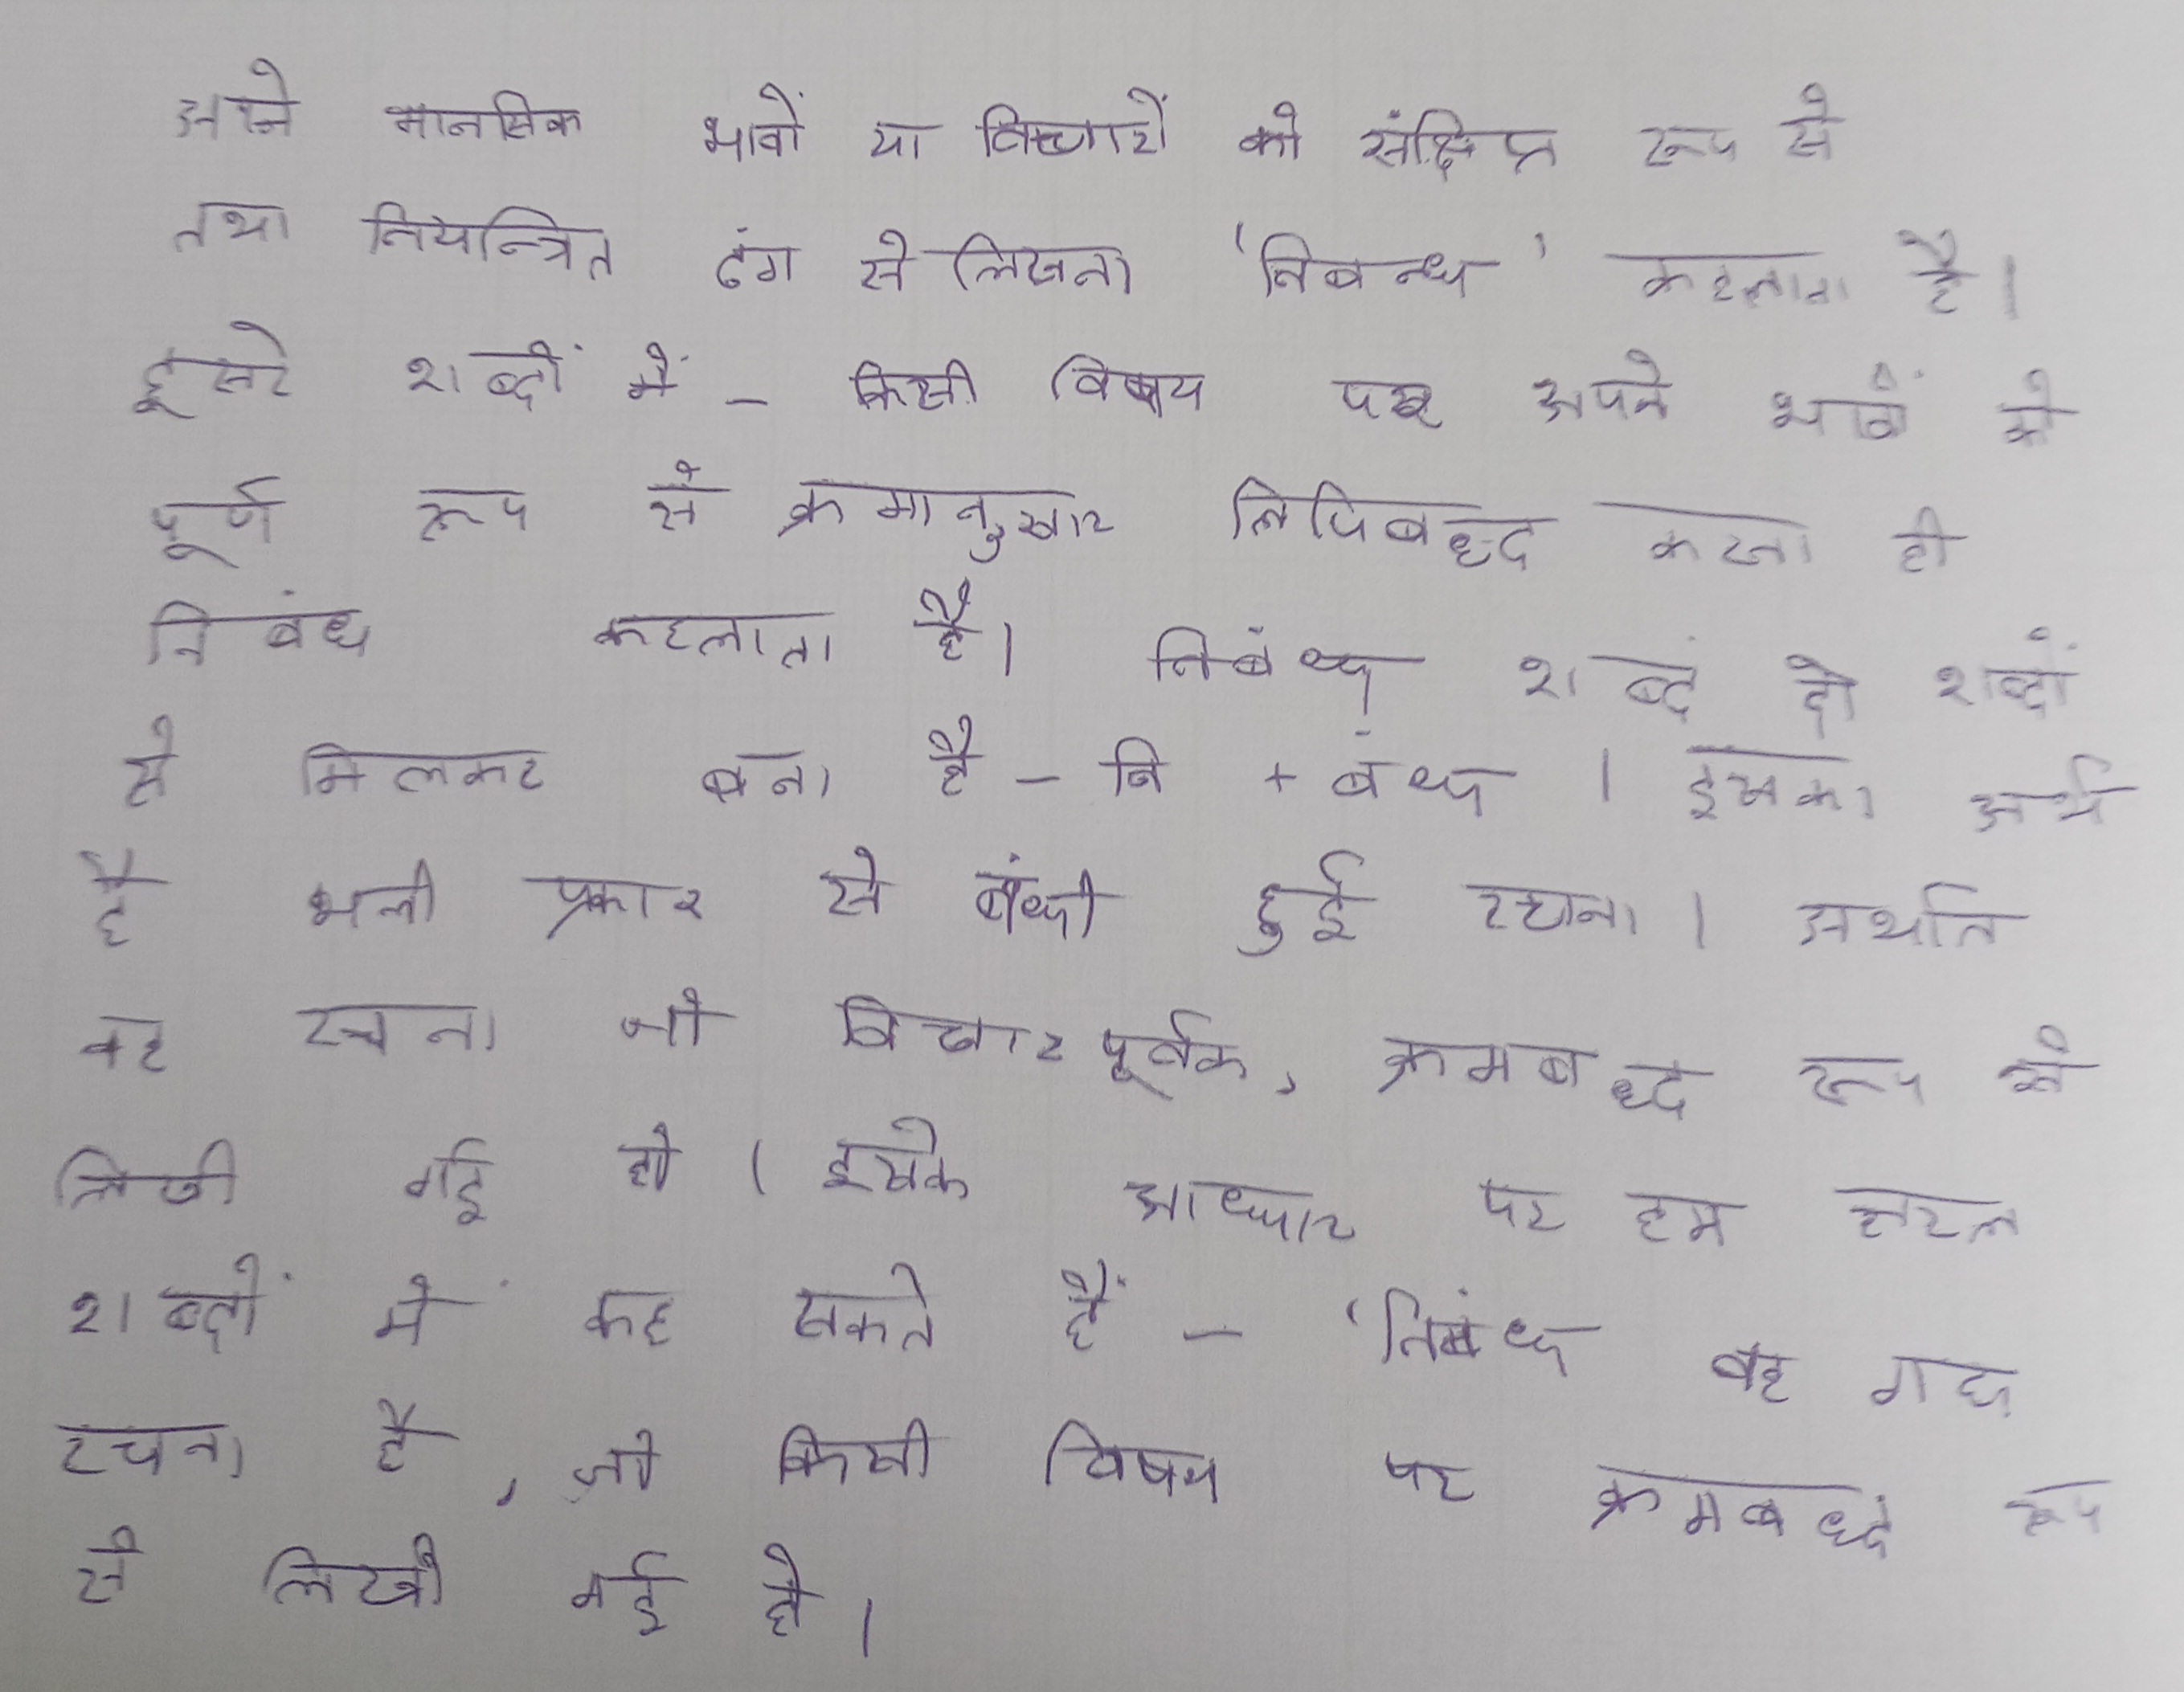 अपने मानसिक भावों या विचारों को संक्षिप्त रूप से
तथा नियन्त्रित ढंग से लिखना 'निबन्ध' कहलाता है।
दूसरे शब्दों में - किसी विषय पर अपने भावों को
पूर्ण रूप से क्रमानुसार लिपिबद्ध करना ही
निबंध कहलाता है। निबंध शब्द दो शब्दों
से मिलकर बना है - नि + बंध । इसका अर्थ
है भली प्रकार से बंधी हुई रचना । अर्थात
वह रचना जो विचारपूर्वक, क्रमबद्ध रूप से
लिखी गई हो । इसके आधार पर हम सरल
शब्दों में कह सकते हैं - 'निबंध वह गद्य
रचना है, जो किसी विषय पर क्रमबद्ध रूप
से लिखी गई हो ।